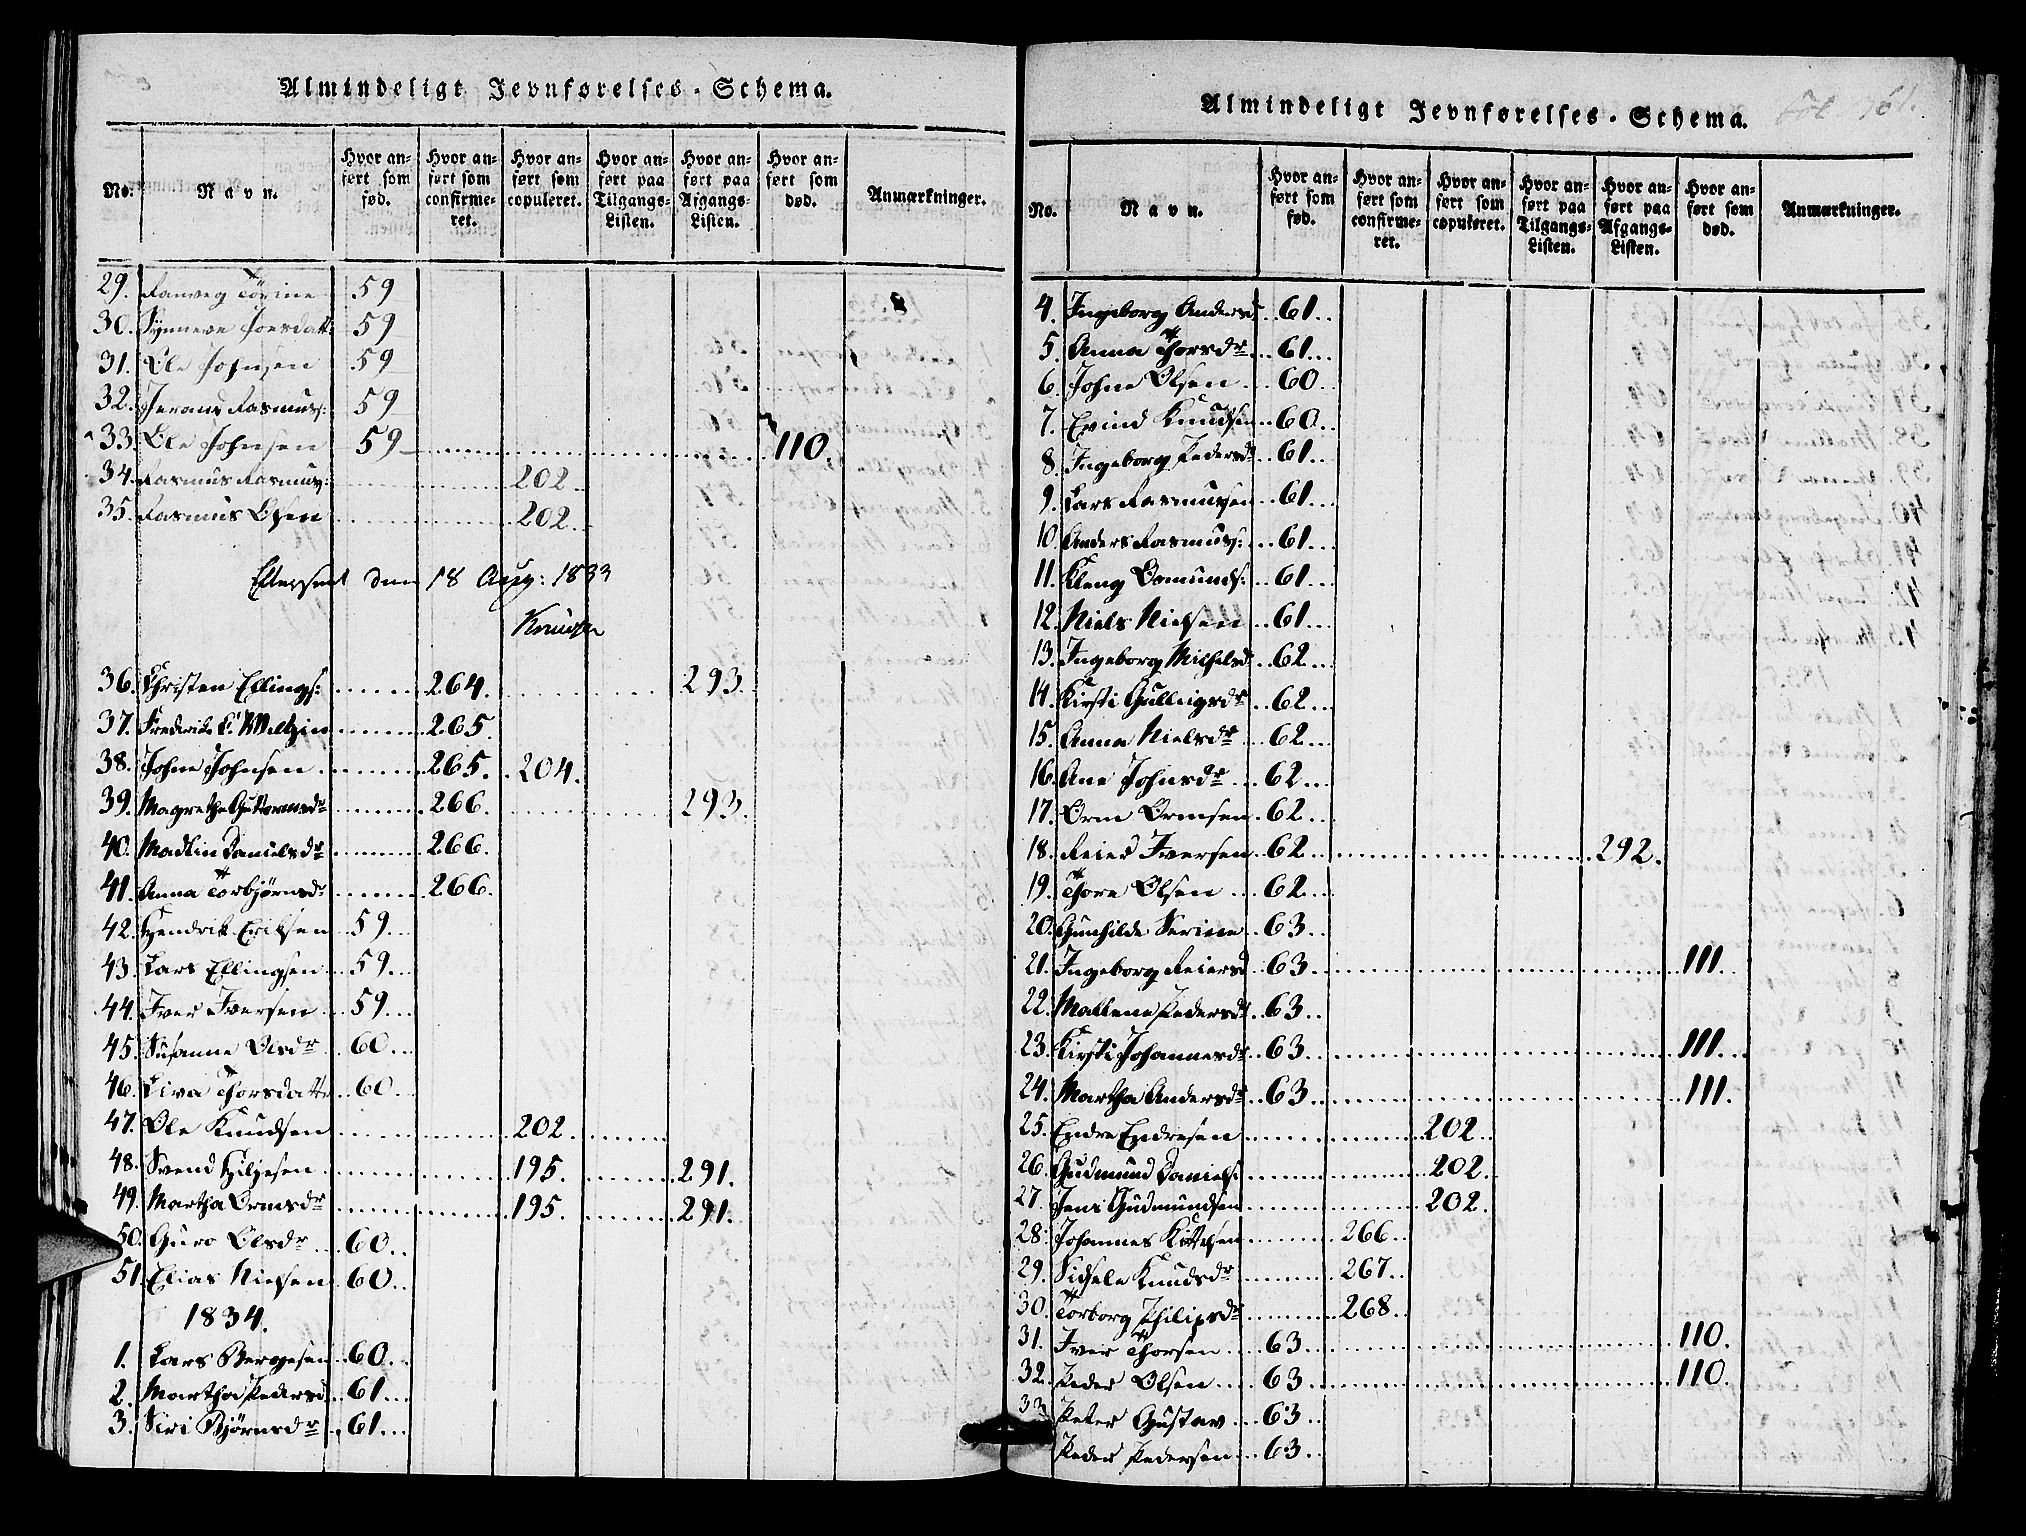 Almindeligt Jevnførelses-Schema.
No. Navn. Hvor anført som fød. Hvor anført som confirmeret. Hvor anført som copuleret. Hvor anført paa Tilgangs-Listen. Hvor anført paa Afgangs-Listen. Hvor anført som død. Anmærkninger.
29. Ranveg Tørine 59
30. Synneve Joesdatt: 59
31. Ole Johnsen 59
32. Jerand Rasmuss: 59
33. Ole Johnsen 59 110.
34. Rasmus Rasmuss: 202
35. Rasmus Olsen 202.
Efterseet den 18 Aug: 1833
36. Christen Ellings: 264. 293.
37. Frederik C: Meltzin 265.
38. Johne Johnsen 265. 204.
39. Magrethe Guttormsdr 266. 293.
40. Madlin Danielsdr 266.
41. Anna Torbjørnsdr 266.
42. Hendrik Eriksen 59.
43. Lars Ellingsen 59.
44. Iver Iversen 59.
45. Susanne Olsdr 60.
46. Liva Thorsdatt 60.
47. Ole Knudsen 202.
48. Svend Hiljesen 195. 291.
49. Martha Ormsdr 195. 291.
50. Guro Olsdr 60.
51. Elias Nielsen 60.
1834.
1. Lars Bergesen 60.
2. Martha Pedersd 61.
3. Siri Bjørnsdr 61.
Almindeligt Jevnførelses-Schema.
161.
No. Navn. Hvor anført som fød. Hvor anført som confirmeret. Hvor anført som copuleret. Hvor anført paa Tilgangs-Listen. Hvor anført paa Afgangs-Listen. Hvor anført som død. Anmærkninger.
4. Ingeborg Andersd 61.
5. Anna Thorsdr 61.
6. Johne Olsen 60.
7. Evind Knudsen 60.
8. Ingeborg Pedersdr 61.
9. Lars Rasmussen 61.
10. Anders Rasmuss: 61.
11. Kleng Osmunds: 61.
12. Niels Nielsen 61.
13. Ingeborg Mikkelsd 62.
14. Kirsti Gullaigsdr 62.
15. Anna Nielsdr 62.
16. Ane Johnsdr 62.
17. Orm Ormsen 62.
18. Reier Iversen 62. 292.
19. Thore Olsen 62.
20. Gunhilde Serine 63.
21. Ingeborg Reiersd 63. 111.
22. Mallene Pedersdr 63.
23. Kirsti Johannesdr 63. 111.
24. Martha Andersdr 63. 111.
25. Endre Endresen 202.
26. Gudmund Daniels: 202.
27. Jens Gudmundsen 202.
28. Johannes Kittelsen 266.
29. Sidsele Knudsdr 267.
30. Torborg Philipsdr 268.
31. Iver Thorsen 63. 110.
32. Peder Olsen 63. 110.
33 Peter Gustav 63.
Peder Pedersen 63.